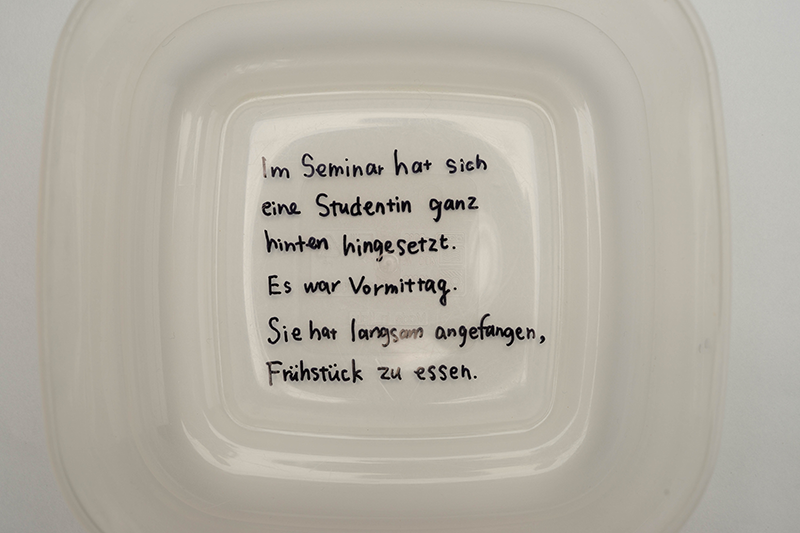 Im Seminar hat sich
eine Studentin ganz
hinten hingesetzt.
Es war Vormittag.
Sie hat langsam angefangen,
Frühstück zu essen.